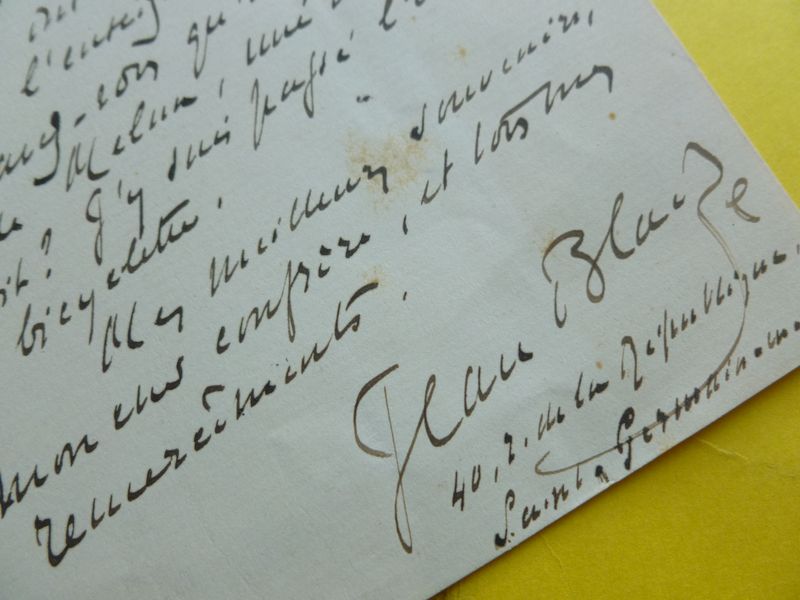 l'enseig
-vous qu'
Melun, une
? J'y suis passé l'
bicyclette.
Mes meilleurs souvenirs,
mon cher confrère, et tous mes
remerciements.
Jean Blaize
40, r. de la République,
Saint-Germain-